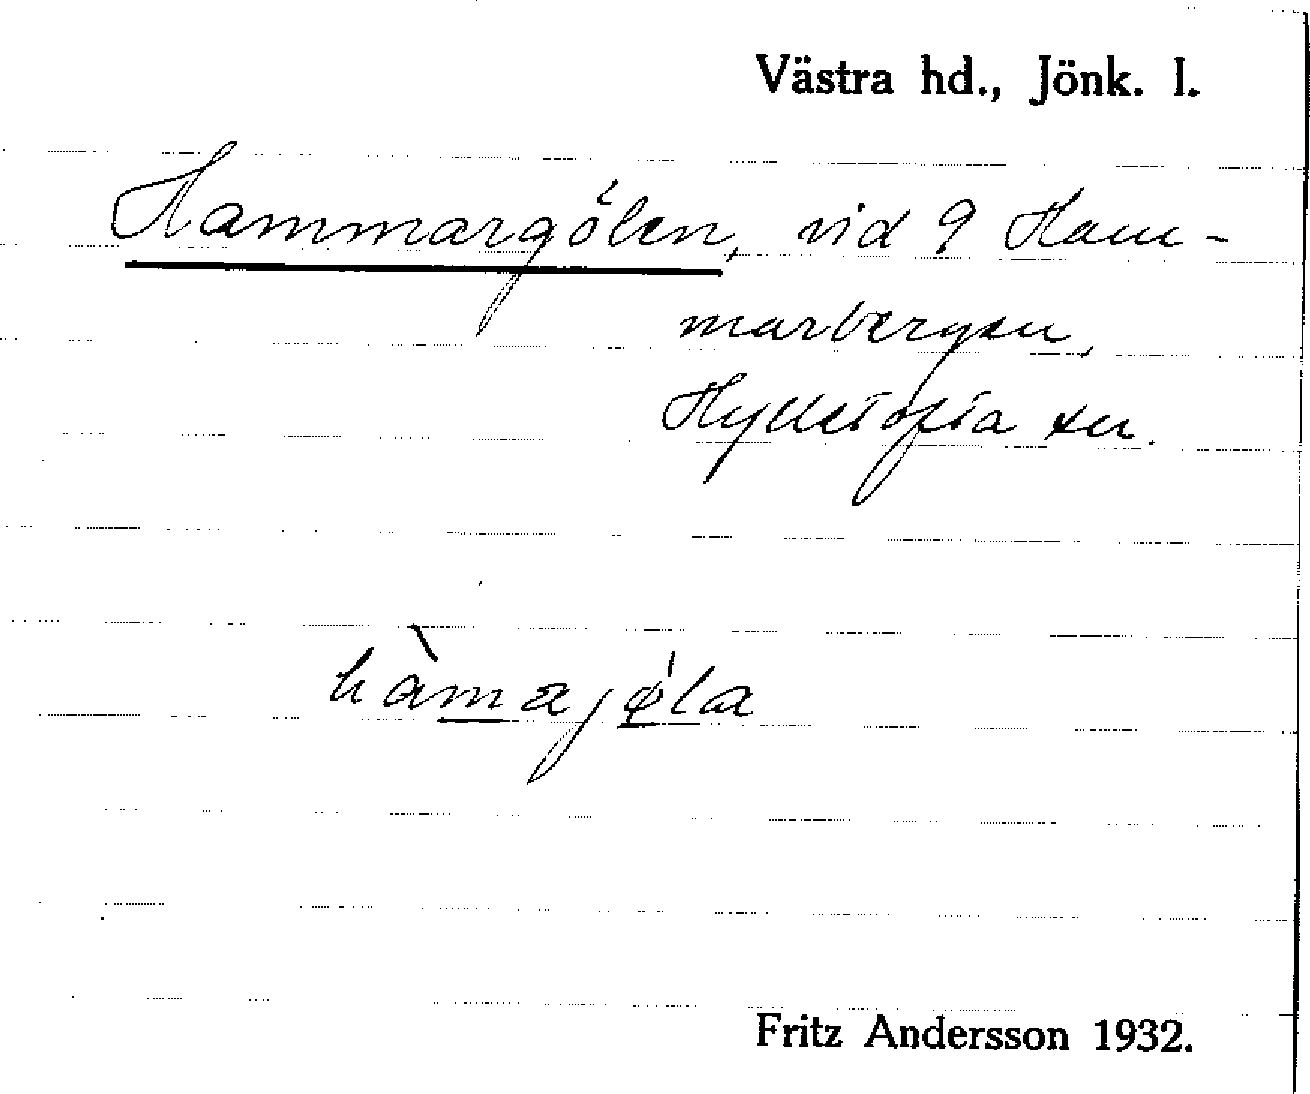 Västra hd., Jönk. l.
Hammargölen, vid 9 Ham-
marbergen,
Hylletofta sn.
hàmajǿla
Fritz Andersson 1932.